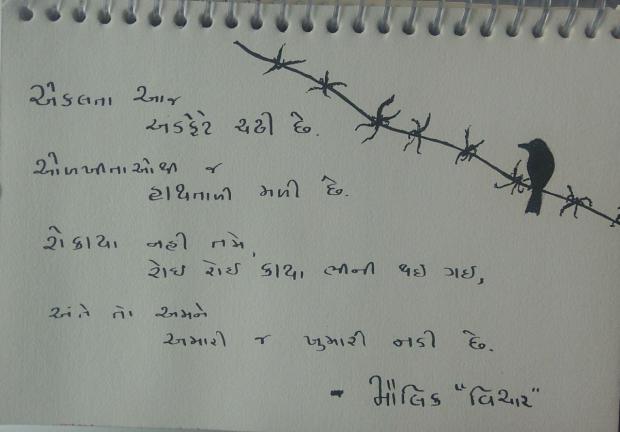 એકલતા આજ
અડફેટે ચઢી છે.
ઓળખીતાઓથી જ
હાથતાળી મળી છે.
રોકાયા નહી તમે,
રોઇ રોઈ કાયા ભીની થઇ ગઇ,
અંતે તો અમને
અમારી જ ખુમારી નડી છે.
- મૌલિક "વિચાર"